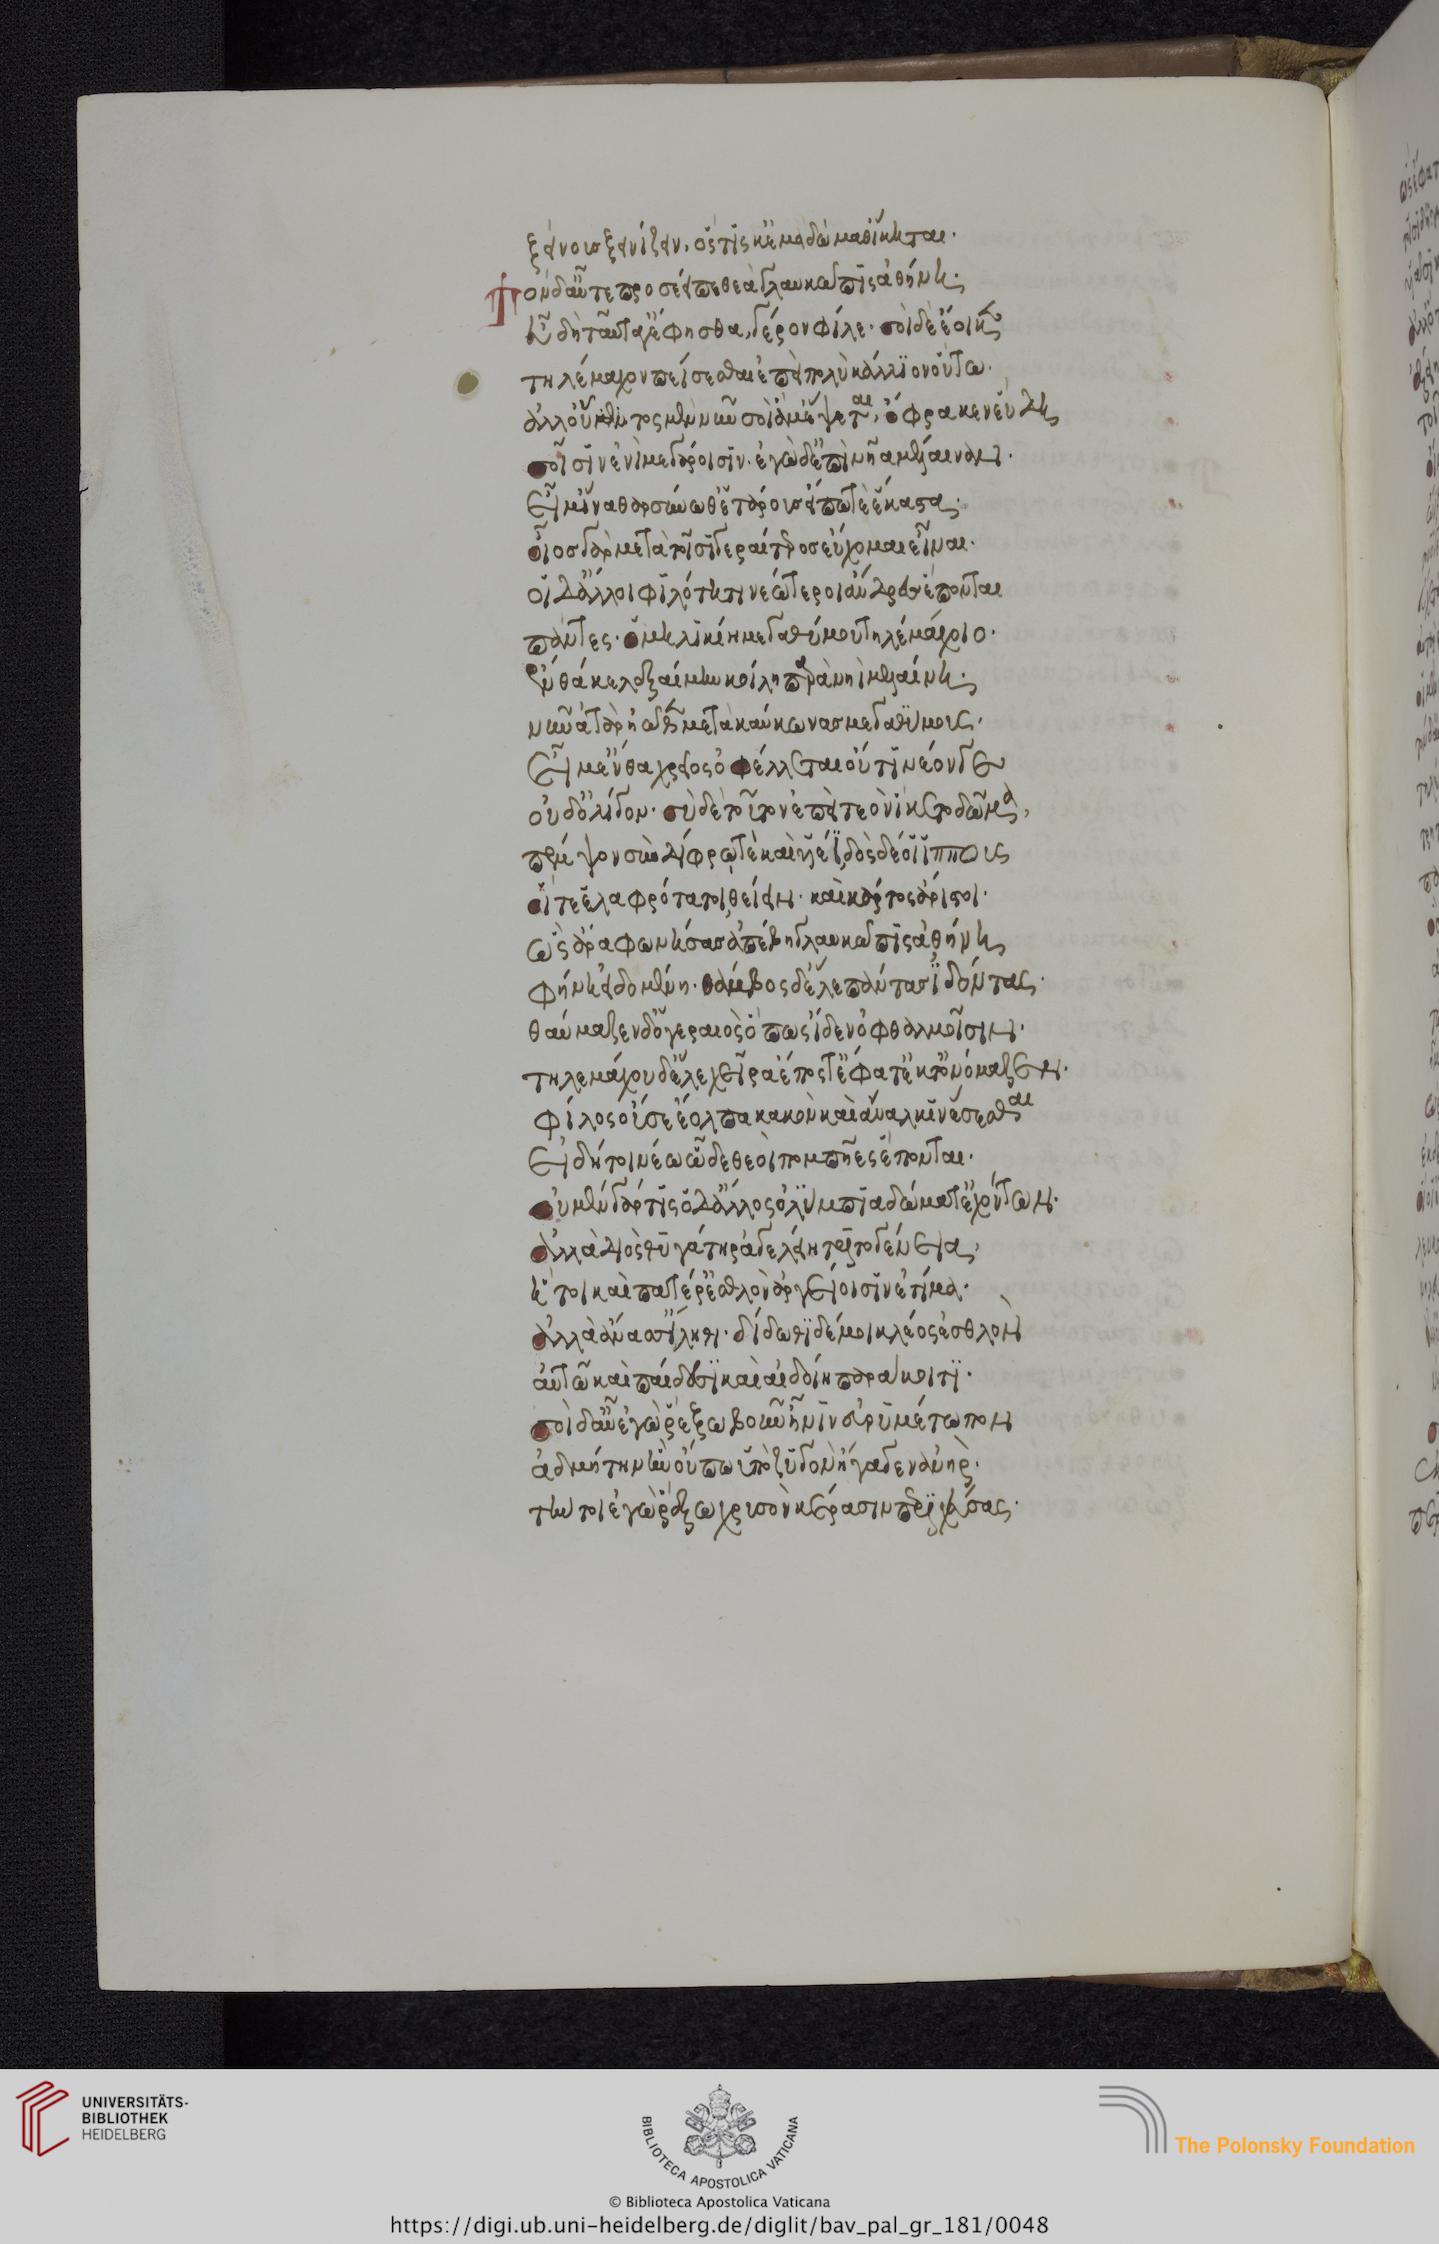 ξείνοισ ξεινίζειν, ὅς τίς κ' ἐμὰ δώμαθ' ἵκηται·
Τὸν δ' αὖτε προσέειπε θεὰ γλαυκῶπις ἀθήνη·
εὖ δὴ ταῦτα γ' ἔφησθα, γέρον φίλε· σοὶ δὲ ἔοικεν
τηλέμαχον πείσεσθαι ἐπεὶ πολὺ κάλλϊον οὕτω·
ἀλλ' οὗτος μὲν νῦν σοὶ ἅμ' ἕψεται, ὄφρα κεν εὕδη
σοῖσῒν ἐνὶ μεγάροισῒν· ἐγὼ δ' ἐπὶ νῆα μέλαιναν·
εἶμ' ἵνα θαρσύνω θ' ἑτάροισ εἴπω τὲ ἕκαστα·
οἶος γὰρ μετὰ τοῖσῒ γεραίτερος εὔχομαι εἶναι·
οἱ δ' ἄλλοι φιλότητι νεώτεροι ἄνδρες ἕπονται
πάντες· ὁμηλικίη μεγαθύμου τηλεμάχοιο·
ἔνθα κε λεξαίμην κοίλη παρὰ νηῒ μελαίνη·
νῦν ἀτὰρ ἠῶθεν μετὰ καύκωνας μεγαθϋμους·
εἶμ' ἔνθα χρεῖος ὀφέλλεται οὔ τι νέον γε
οὐδ' ὀλίγον· σὺ δὲ τοῦτον ἐπεὶ τεὸν ἵκετο δῶμα,
πέμψον σὺν δίφρω τὲ καὶ υἱέϊ, δὸς δέ οἱ ἵππους
οἵ τε ἐλαφρότατοι θείειν· καὶ κάρτος ἄριστοι·
ὡς ἄρα φωνήσασ' ἀπέβη γλαυκῶπις ἀθήνη
φήνη εἰδομένη· θάμβος δ' ἕλε πάντασ ϊδόντας·
θαύμαζεν δ' ὁ γεραιὸς ὅπως ἴδεν ὀφθαλμοῖσιν·
τηλεμάχου δ' ἕλε χεῖρα ἔπος τ' ἔφατ' ἔκ τ' ὀνόμαζεν·
φίλος οὔ σε ἔολπα κακὸν καὶ ἄναλκῒν ἔσεσθαι
εἰ δή τοι νέω ὧδε θεοὶ πομπῆες ἕπονται·
οὐ μὲν γάρ τῒς ὅδ' ἄλλος ὀλϋμπῒα δώματ' ἐχόντων·
ἀλλὰ διὸς θυγάτηρ ἀγελείη τριτογένεια,
ἥ τοι καὶ πατέρ' ἐσθλὸν ἀργείοισῒν ἐτίμα·
ἀλλὰ ἄνασσ' ἵληθι· δίδωθῒ δέ μοι κλέος ἐσθλὸν
αὐτῶ καὶ παίδεσσῒ καὶ αἰδοίη παρακοίτϊ·
σοὶ δ' αὖ ἐγὼ ῥέξω βοῦν ἦνῒν εὐρυμέτωπον
ἀδμήτην ἣν οὔπω ὑπὸ ζυγὸν ἤγαγεν ἀνὴρ·
τήν τοι ἐγὼ ῥέξω χρυσὸν κέρασιν περϊχεύσας·
UNIVERSITÄTS-
BIBLIOTHEK
HEIDELBERG
BIBLIOTECA APOSTOLICA VATICANA
The Polonsky Foundation
© Biblioteca Apostolica Vaticana
https://digi.ub.uni-heidelberg.de/diglit/bav_pal_gr_181/0048